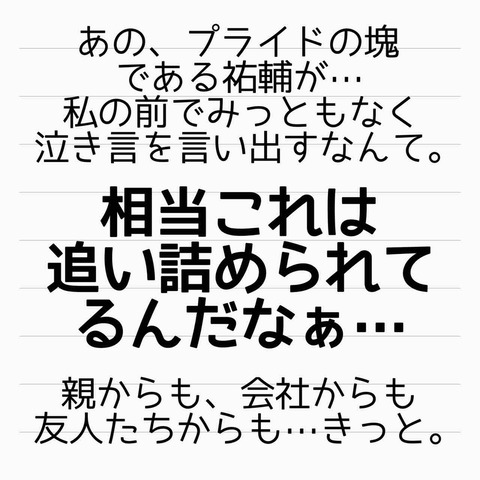 あの、プライドの塊
である祐輔が…
私の前でみっともなく
泣き言を言い出すなんて。
相当これは
追い詰められて
るんだなぁ…
親からも、会社からも
友人たちからも…きっと。